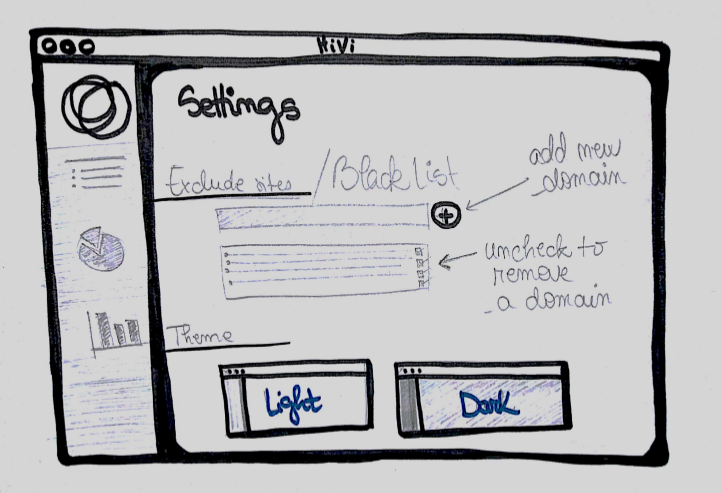 HiVi
Settings
Exclude sites / BlackList
add new
domain
uncheck to
remove
a domain
Theme
Light
Dark